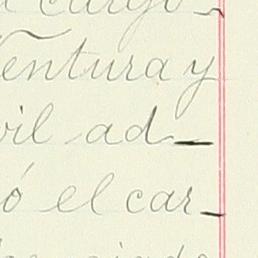 cargo
Ventura y
vil ad-
ó el car-